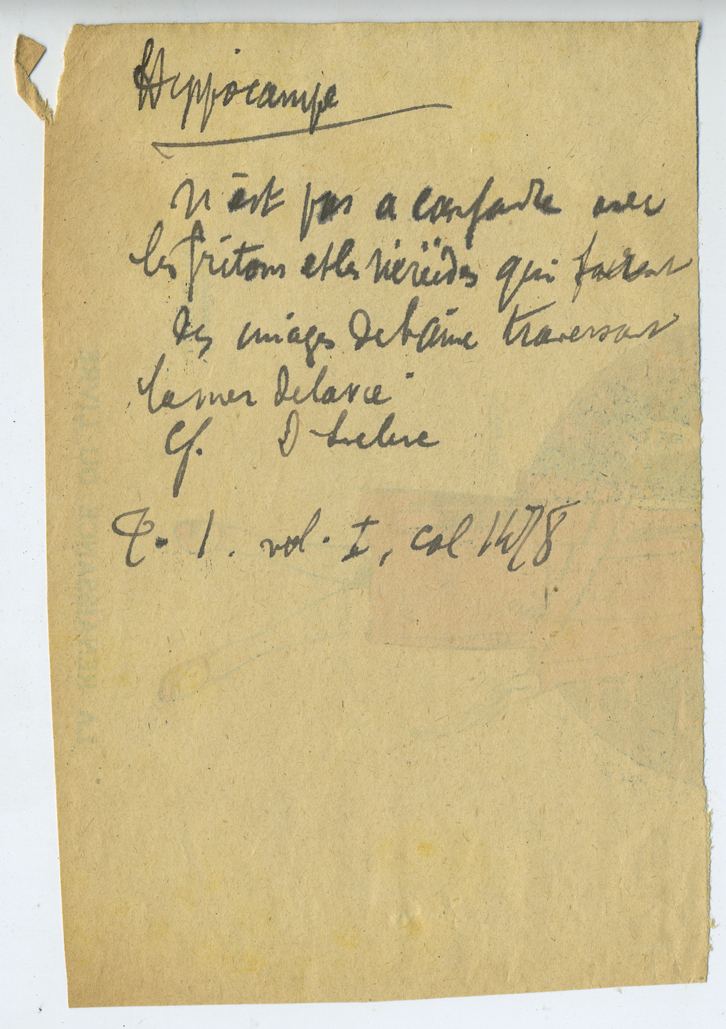 Hippocampe
n'est pas a confondre avec
les tritons et les néréïdes qui
des images de l'âme traversant
la mer de la vie
Cf. D Leclerc
T. 1. vol. I, col 1478
LA RENAISSANCE DU LIVRE